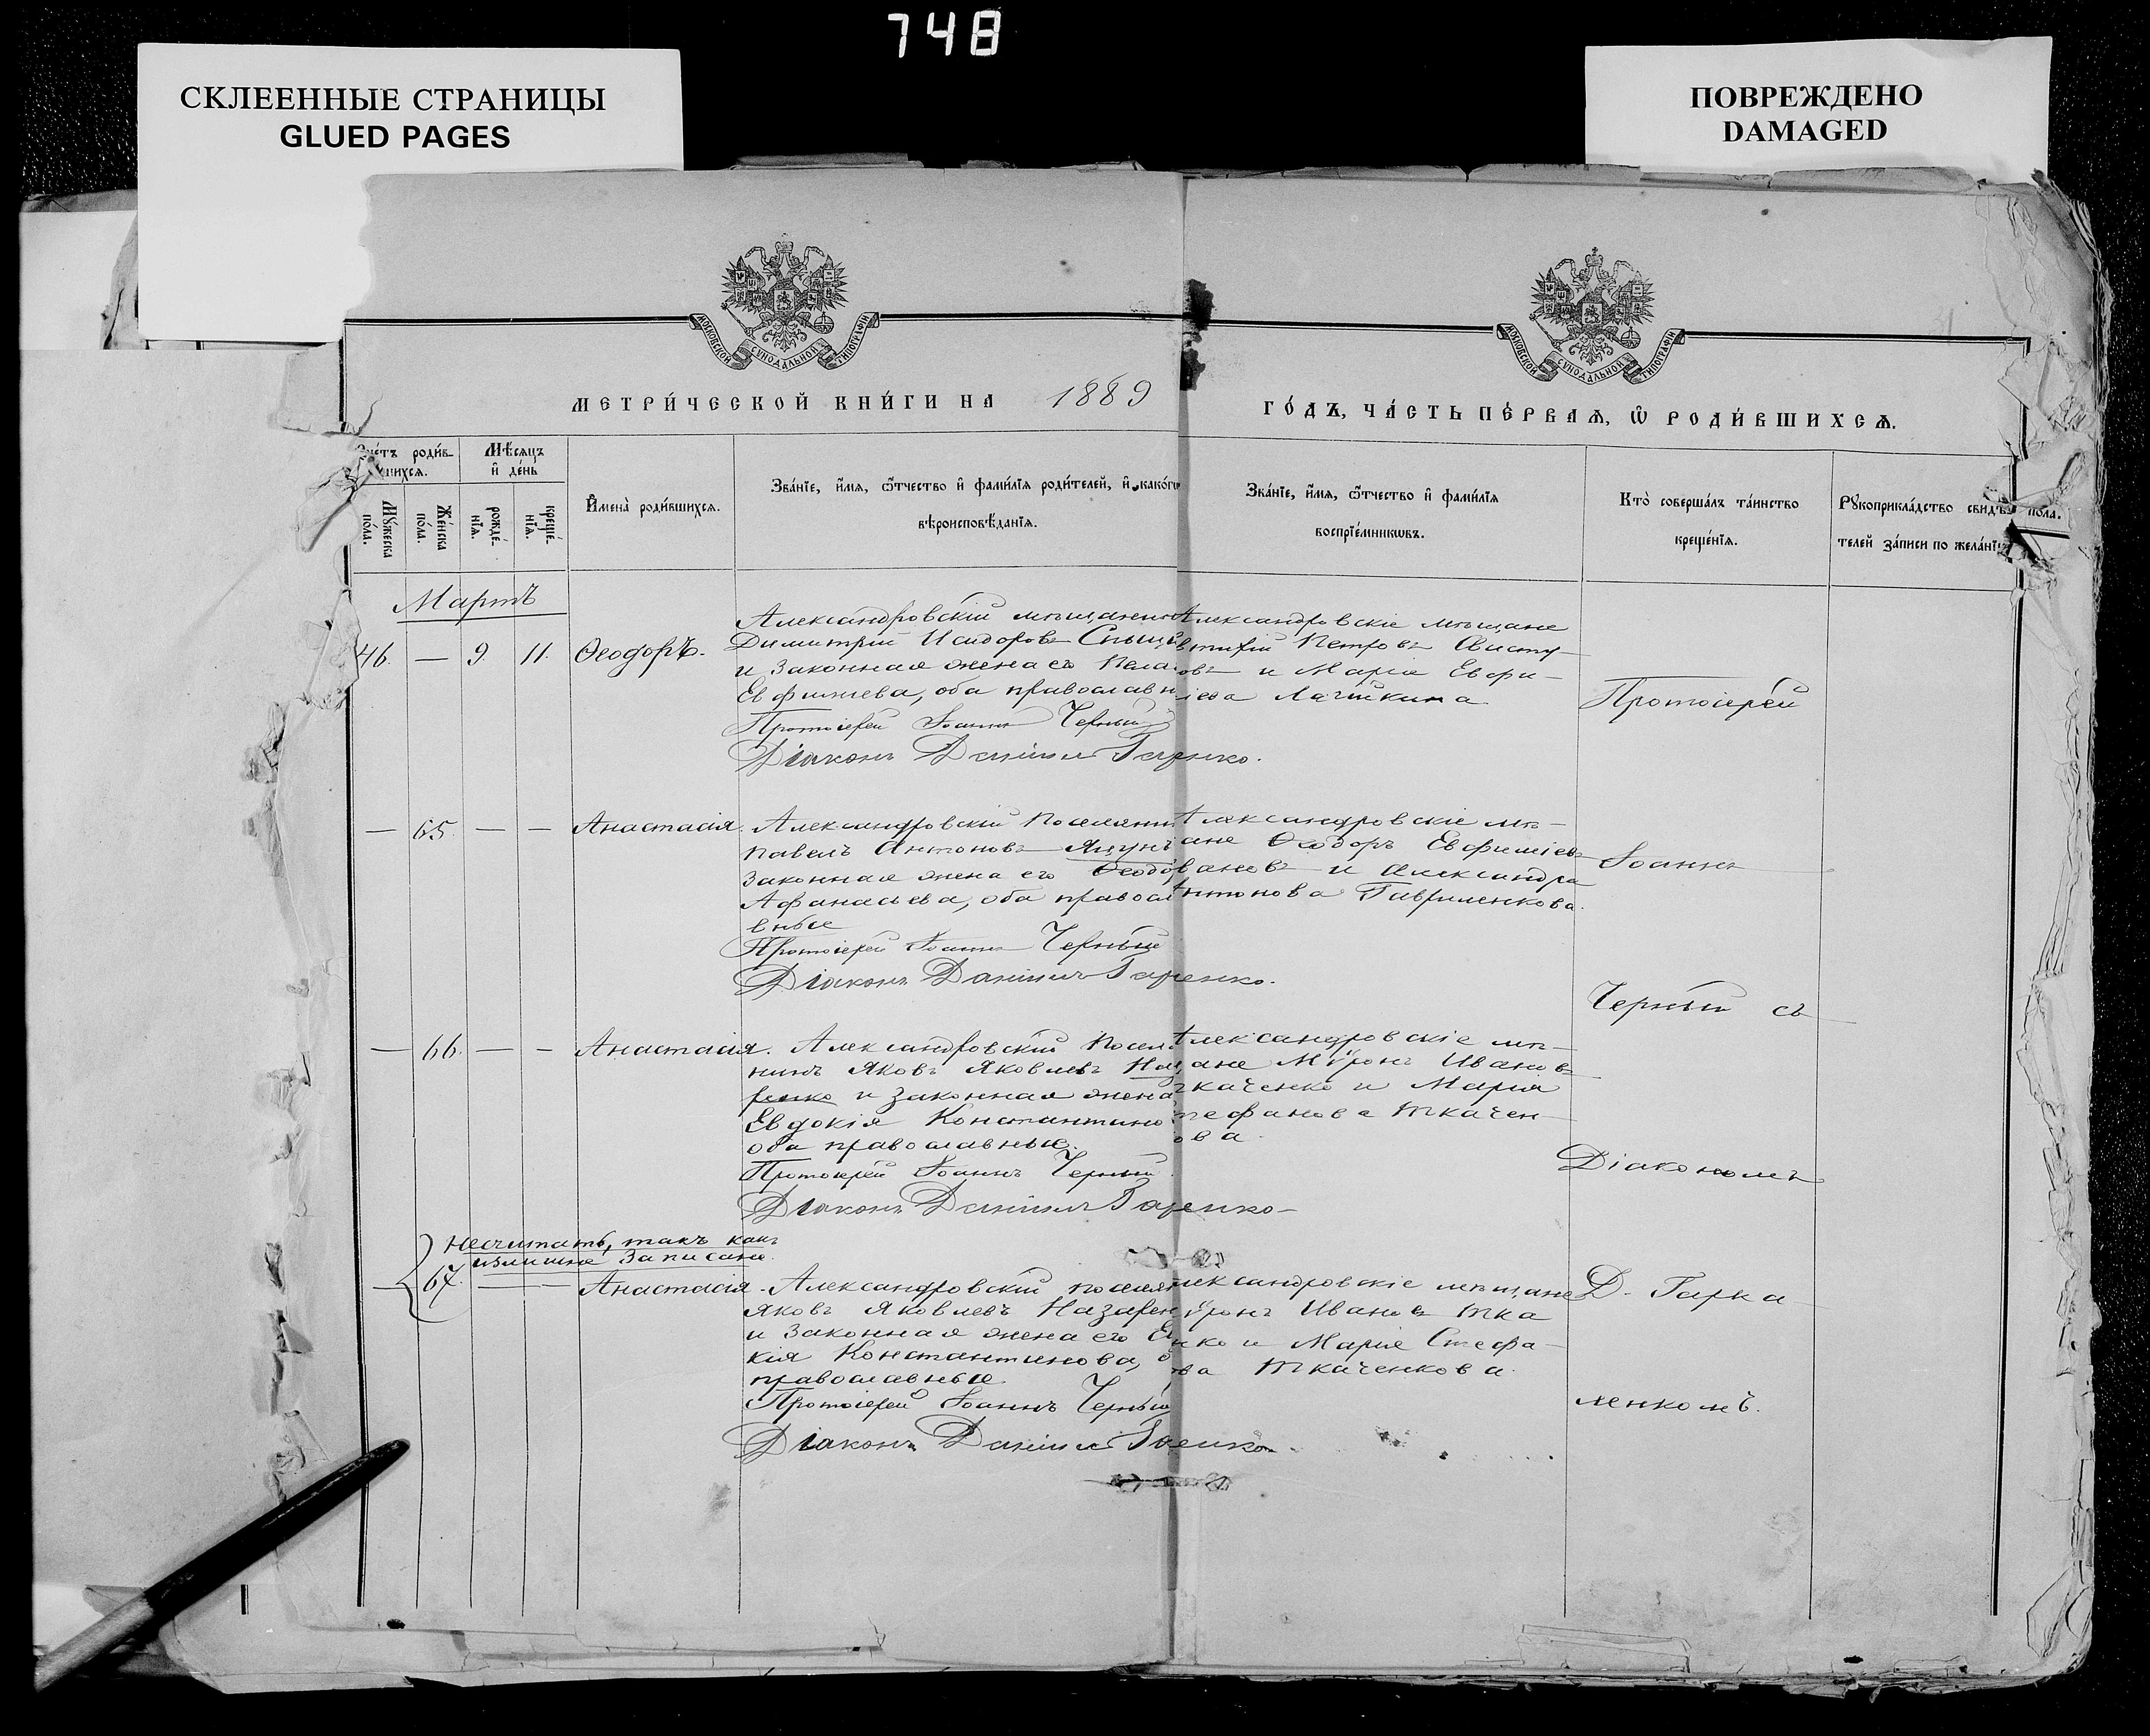 748
СКЛЕЕННЫЕ СТРАНИЦЫ
GLUED PAGES
ПОВРЕЖДЕНО
DAMAGED
МОСКОВСКОЙ СУНОДАЛЬНОЙ ТИПОГРАФІИ
МОСКОВСКОЙ СУНОДАЛЬНОЙ ТИПОГРАФІИ
МЕТРИ́ЧЕСКОЙ КНИ́ГИ НА 1889
ГО́ДЪ, ЧА́СТЬ ПЕ́РВАѦ, Ѡ҆ РОДИ́ВШИХСѦ.
роди́в-
шихсѧ.
Мѣ́сѧцъ
и҆ де́нь
Му́жеска
по́ла.
Же́нска
по́ла.
рожде́-
нїѧ.
креще́-
нїѧ.
И҆мена̀ роди́вшихсѧ.
Зва́нїе, и҆́мѧ, ѻ҆́тчество и҆ фами́лїѧ роди́телей, и҆ како́гѡ
вѣроисповѣ́данїѧ.
Зва́нїе, и҆́мѧ, ѻ҆́тчество и҆ фами́лїѧ
воспрїе́мникѡвъ.
Кто̀ соверша́лъ та́инство
креще́нїѧ.
Рꙋкоприкла́дство свидѣ-
телей за́писи по жела́нїю
по́ла.
Мартъ
46. — 9. 11. Ѳеодоръ.
Александровскій мѣщанин
Димитрій Исидоровъ
и законная жена его Пела
Евфиміева, оба православн
Протоіерей Іоаннъ Черный
Діаконъ Даніилъ Гаренко.
Александровскіе мѣщане
Петровъ
овъ и Марія Евфи-
іева
— 65. — — Анастасія.
Александровскій поселянин
Павелъ Антоновъ Яцун
законная жена его Ѳеодо
Афанасьева, оба правосла
вные
Протоіерей Іоаннъ Черный
Діаконъ Даніилъ Гаренко.
Александровскіе мѣ-
ане Ѳеодоръ Евфиміевъ
вановъ и Александра
Антонова Гавриленкова.
— 66. — — Анастасія.
Александровскій посел
нинъ Яковъ Яковлевъ Наз
ренко и законная жена
Евдокія Константино
оба православные.
Протоіерей Іоаннъ Черный
Діаконъ Даніилъ Гаренко
Александровскіе мѣ-
ане Мѷронъ Ивановъ
каченко и Марія
тефанова Ткачен-
ова.
Несчитать, такъ какъ
излишне записана.
— 67. — — Анастасія.
Александровскій поселян
Яковъ Яковлевъ Назарен
и законная жена его Е
кія Константинова, о
православные.
Протоіерей Іоаннъ Черный
Діаконъ Даніилъ Гаренко
лександровскіе мѣщане
ѷронъ Ивановъ Тка
нко и Марія Стефа-
ва Ткаченкова.
Протоіерей
Іоаннъ
Черный съ
Діакономъ
Д. Гарка
ленкомъ.